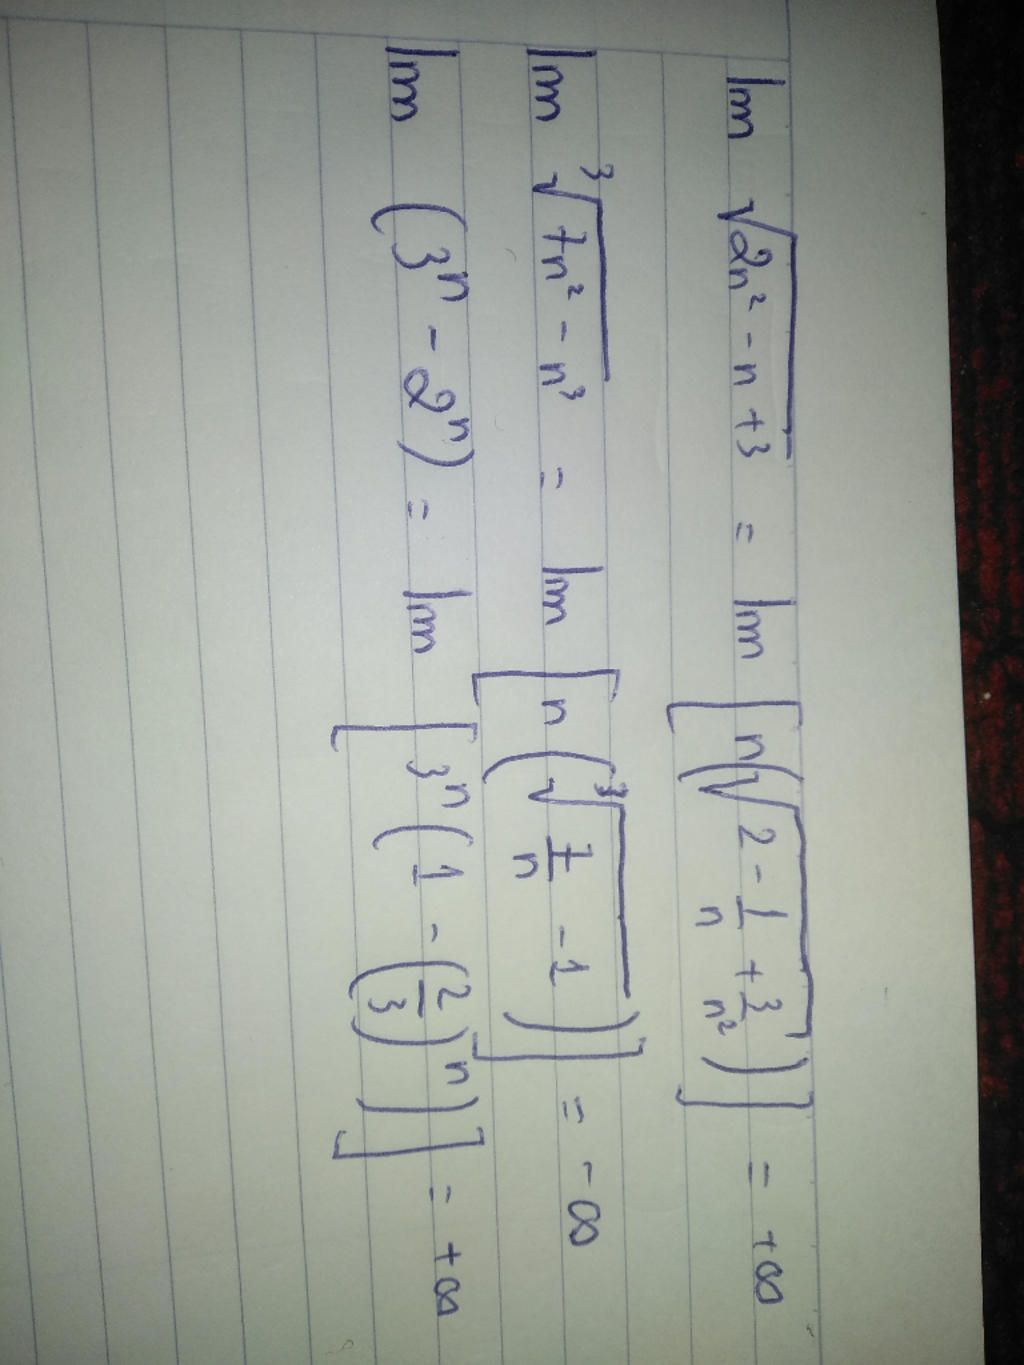 lim √(2n² - n + 3) = lim [n(√(2 - 1/n + 3/n²))] = +∞
lim ³√(7n² - n³) = lim [n(³√(7/n - 1))] = -∞
lim (3ⁿ - 2ⁿ) = lim [3ⁿ(1 - (2/3)ⁿ)] = +∞